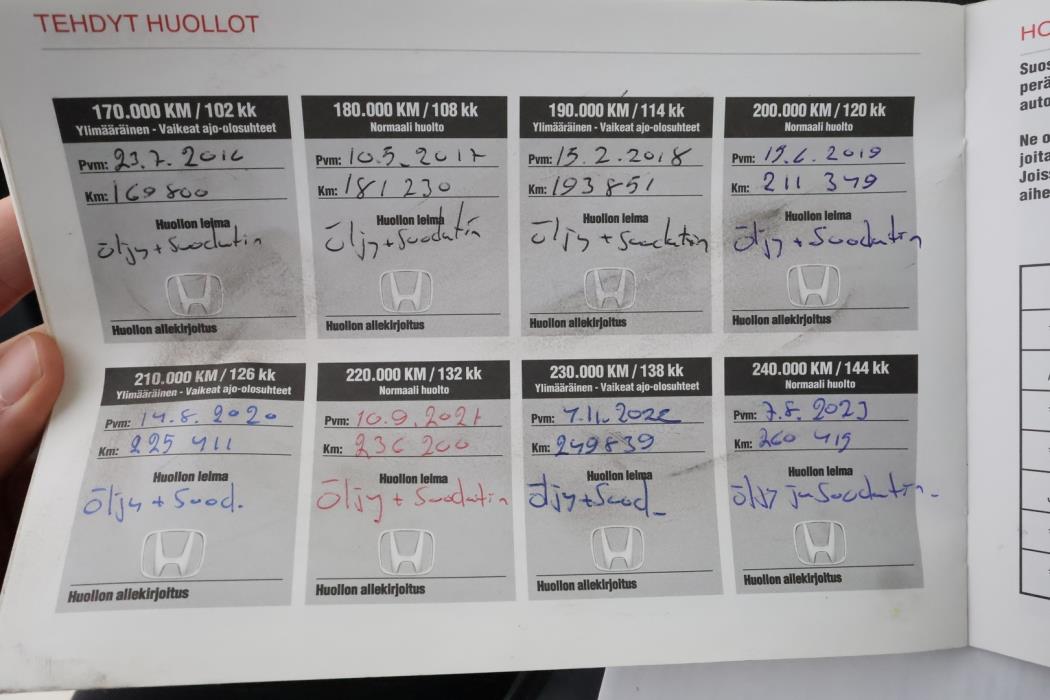 TEHDYT HUOLLOT
170.000 KM / 102 kk
Ylimääräinen - Vaikeat ajo-olosuhteet
Pvm: 23.7.2016
Km: 169 800
Huollon leima
Öljy + Suodatin
Huollon allekirjoitus
180.000 KM / 108 kk
Normaali huolto
Pvm: 10.5.2017
Km: 181 230
Huollon leima
Öljy + Suodatin
Huollon allekirjoitus
190.000 KM / 114 kk
Ylimääräinen - Vaikeat ajo-olosuhteet
Pvm: 15.2.2018
Km: 193 851
Huollon leima
Öljy + Suodatin
Huollon allekirjoitus
200.000 KM / 120 kk
Normaali huolto
Pvm: 15.6.2019
Km: 211 349
Huollon leima
Öljy + Suodatin
Huollon allekirjoitus
210.000 KM / 126 kk
Ylimääräinen - Vaikeat ajo-olosuhteet
Pvm: 14.8.2020
Km: 225 411
Huollon leima
Öljy + Suod.
Huollon allekirjoitus
220.000 KM / 132 kk
Normaali huolto
Pvm: 10.9.2021
Km: 236 200
Huollon leima
Öljy + Suodatin
Huollon allekirjoitus
230.000 KM / 138 kk
Ylimääräinen - Vaikeat ajo-olosuhteet
Pvm: 7.11.2022
Km: 249839
Huollon leima
Öljy + Suod_
Huollon allekirjoitus
240.000 KM / 144 kk
Normaali huolto
Pvm: 7.8.2023
Km: 260 419
Huollon leima
Öljy ja Suodatin_
Huollon allekirjoitus
HO
Suos
perä
auto
Ne o
joita
Jois
aihe